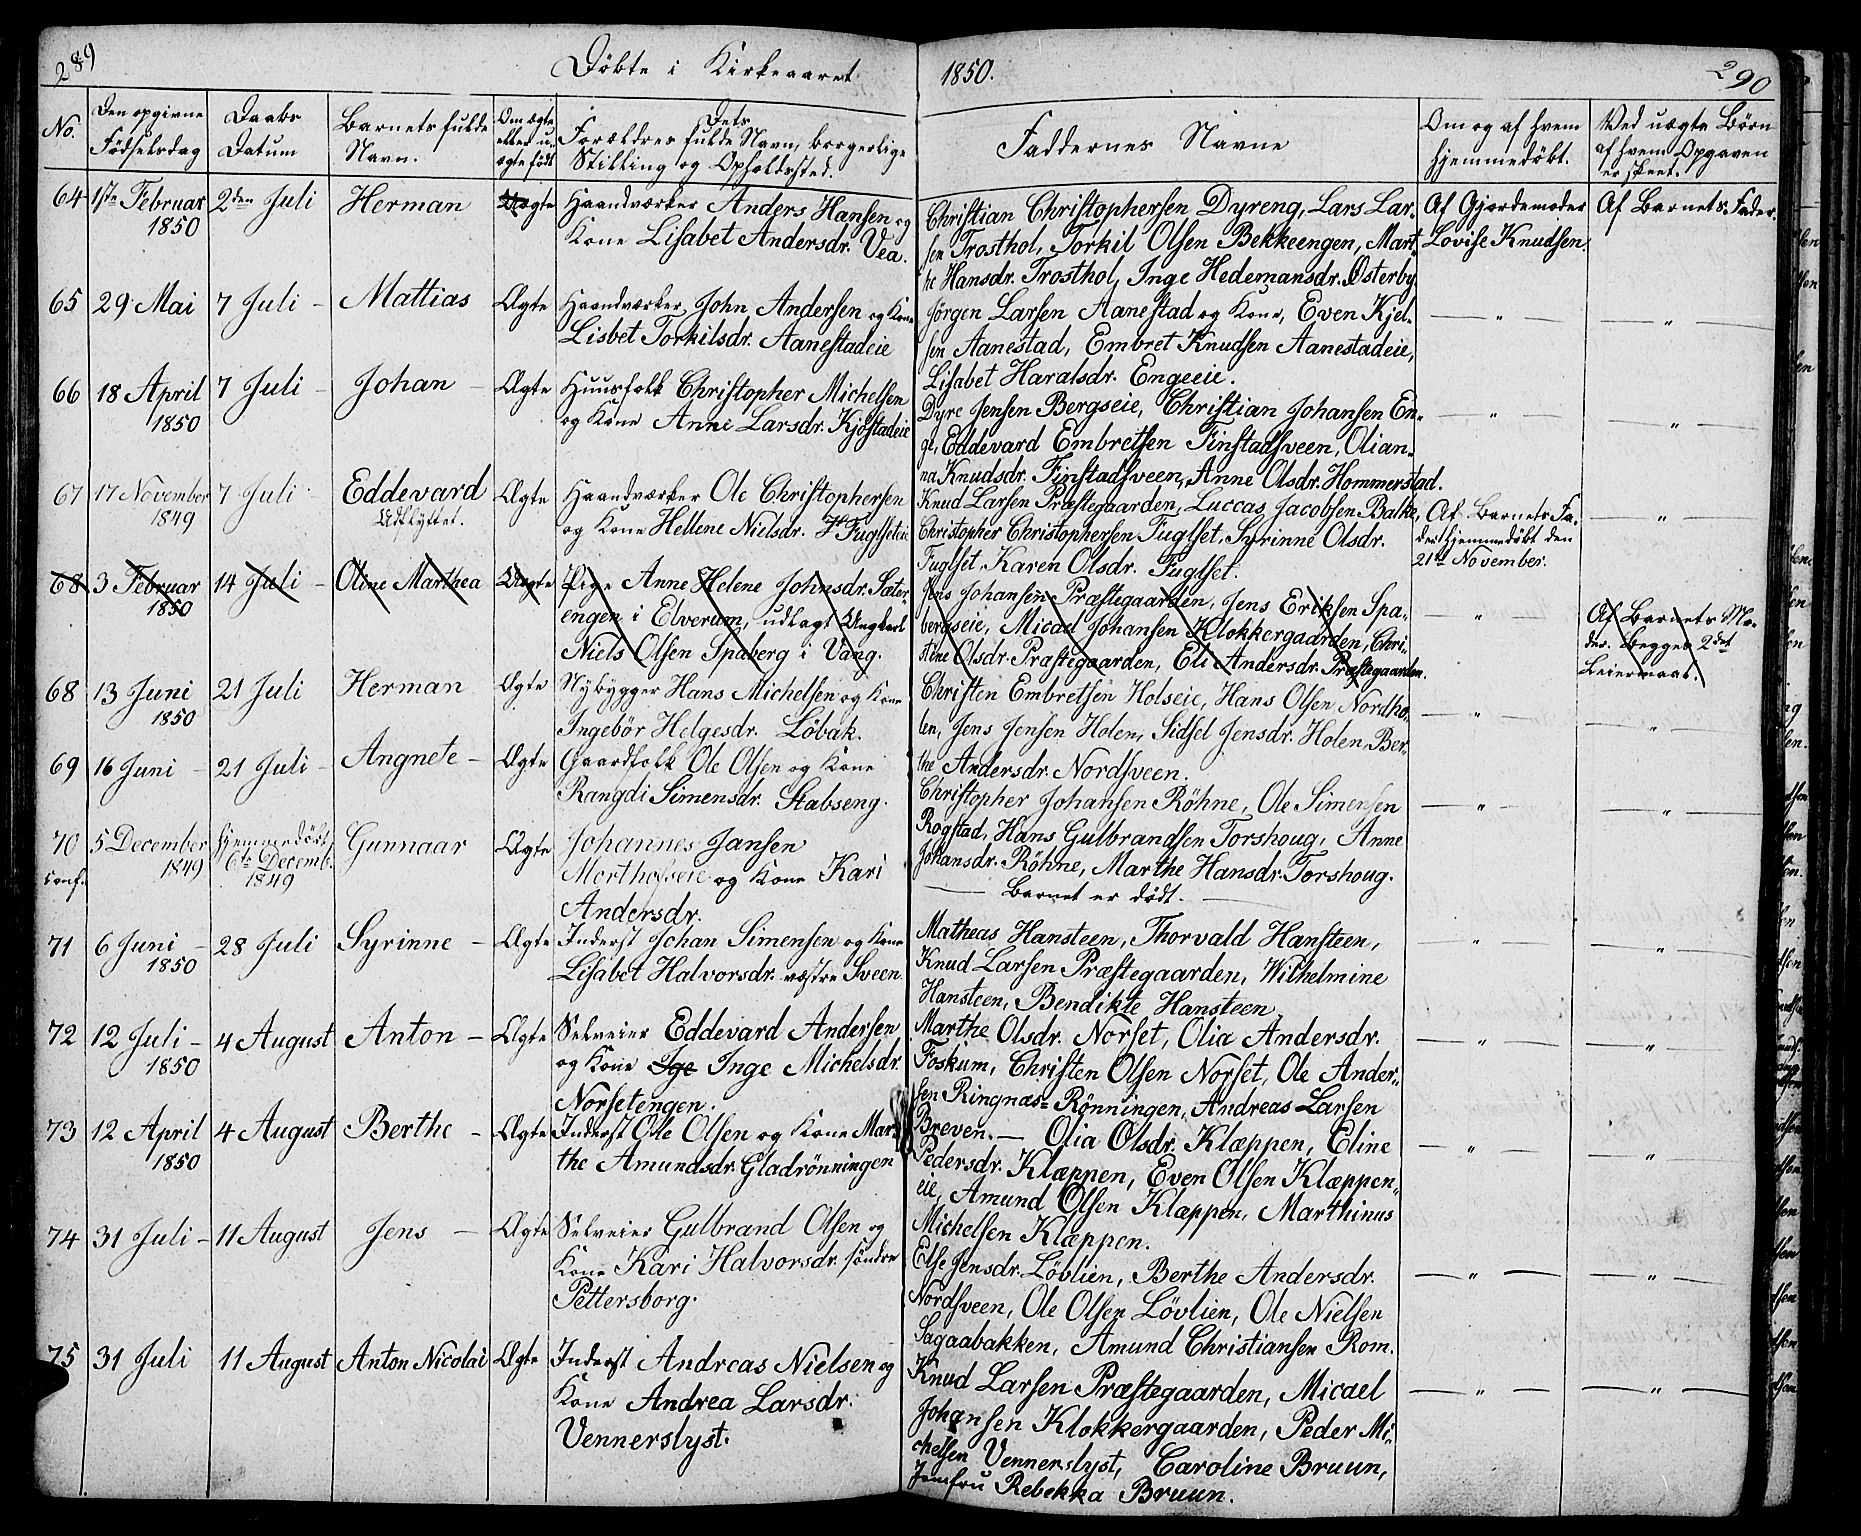 289
Döbte i Kirkeaaret
1850.
290
No.
Den opgivne Födselsdag
Daabs Datum
Barnets fulde Navn.
Om ægte eller uægte födt
Dets Forældres fulde Navn, borgerlige Stilling og Opholdssted.
Faddernes Navne
Om og af hvem hjemmedöbt.
Ved uægte Börn af hvem Opgaven er skeet.
64 1ste Februar 2den Juli Herman Uægte Haandværker Anders Hansen og
1850 Kone Lisabet Andersdr. Vea.
Christian Christophersen Dyreng, Lars Lar-
sen Trosthol, Torkil Olsen Bekkeengen, Mart-
he Hansdr. Trosthol, Inge Hedemansdr. Österby
Af Gjordemoder
Lovise Knudsen.
Af Barnets Fader.
65 29 Mai 7 Juli – Mattias Ægte Haandværker John Andersen og Kone
Lisbet Torkilsdr. Aanestadeie
Jörgen Larsen Aanestad og Kone, Even Kjel-
sen Aanestad, Embret Knudsen Aanestadeie,
Lisabet Haralsdr. Engeeie.
— " —
— " —
66 18 April 7 Juli – Johan – Ægte Huusfolk Christopher Michelsen
1850 og Kone Anne Larsdr. Kjöstadeie
Dyre Jensen Bergseie, Christian Johansen En-
ge, Eddevard Embretsen Finstadsveen, Olian-
na Knudsdr. Finstadsveen, Anne Olsdr. Hommerstad.
— " —
— " —
67 17 November 7 Juli – Eddevard Ægte Haandværker Ole Christophersen
1849 Udflyttet. og Kone Hellene Nielsdr. Fuglseteie
Knud Larsen Præstegaarden, Luccas Jacobsen Balke,
Christopher Christophersen Fuglset, Syrinne Olsdr.
Fuglset, Karen Olsdr. Fuglset.
Af Barnets Fa-
der hjemmedöbt den
21de November.
— " —
68 3 Februar 14 Juli – Oline Marthea Uægte Pige Anne Helene Johnsdr. Sæter-
1850 engen i Elverum, udlagt Ungkarl
Niels Olsen Spaberg i Vang.
Jens Johansen Præstegaarden, Jens Eriksen Spa-
bergseie, Micael Johansen Klokkergaarden, Chri-
stine Olsdr. Præstegaarden, Eli Andersdr. Præstegaarden.
— " —
Af Barnets Mo-
der. Begges 2det
Leiermaal.
68 13 Juni 21 Juli Herman Ægte Nybygger Hans Michelsen og Kone
1850 Ingebör Helgesdr. Löbak.
Christen Embretsen Holseie, Hans Olsen Nordho-
len, Jens Jensen Holen, Sidsel Jensdr. Holen, Ber-
the Andersdr. Nordsveen.
— " —
— " —
69 16 Juni – 21 Juli – Angnete – Ægte Gaardfolk Ole Olsen og Kone
Rangdi Simensdr. Stabseng.
Christopher Johansen Röhne, Ole Simensen
Rogstad, Hans Gulbrandsen Torshoug, Anne
Johansdr. Röhne, Marthe Hansdr. Torshoug.
— " —
— " —
70 5 December hjemmedöbt Gunnaar Ægte Johannes Jansen
conf. 1849 6te Decemb. 1849 Morthofseie og Kone Kari
Andersdr.
— Barnet er död. —
71 6 Juni – 28 Juli Syrinne – Ægte Inderst Johan Simensen og Kone
1850 Lisabet Halvorsdr. væstre Sveen
Matheas Hansteen, Thorvald Hansteen,
Knud Larsen Præstegaarden, Wilhelmine
Hansteen, Bendikte Hansteen
— " —
— " —
72 12 Juli – 4 August Anton – Ægte Selveier Eddevard Andersen
1850 og Kone Ige Inge Michelsdr.
Norsetengen.
Marthe Olsdr. Norset, Olia Andersdr.
Foskum, Christen Olsen Norset, Ole Ander-
sen Ringnæs-Rönningen, Andreas Larsen
Breven. —
— " —
— " —
73 12 April 4 August Berthe – Ægte Inderst Ole Olsen og Kone Mar-
1850 the Amundsdr. Gladrönningen
Olia Olsdr. Klæppen, Eline
Pedersdr. Klæppen, Even Olsen Klæppen-
eie, Amund Olsen Klæppen, Marthinus
Michelsen Klæppen.
— " —
— " —
74 31 Juli – 11 August Jens – Ægte Selveier Gulbrand Olsen og
Kone Kari Halvorsdr. söndre
Pettersborg.
Else Jensdr. Lövlien, Berthe Andersdr.
Nordsveen, Ole Olsen Lövlien, Ole Nielsen
Sagaabakken, Amund Christiansen Rom.
— " —
— " —
75 31 Juli 11 August Anton Nicolai Ægte Inderst Andreas Nielsen og
Kone Andrea Larsdr.
Vennerslyst.
Knud Larsen Præstegaarden, Micael
Johansen Klokkergaarden, Peder Mi-
chelsen Vennerslyst, Caroline Bruun,
Jomfru Rebekka Bruun.
— " —
— " —